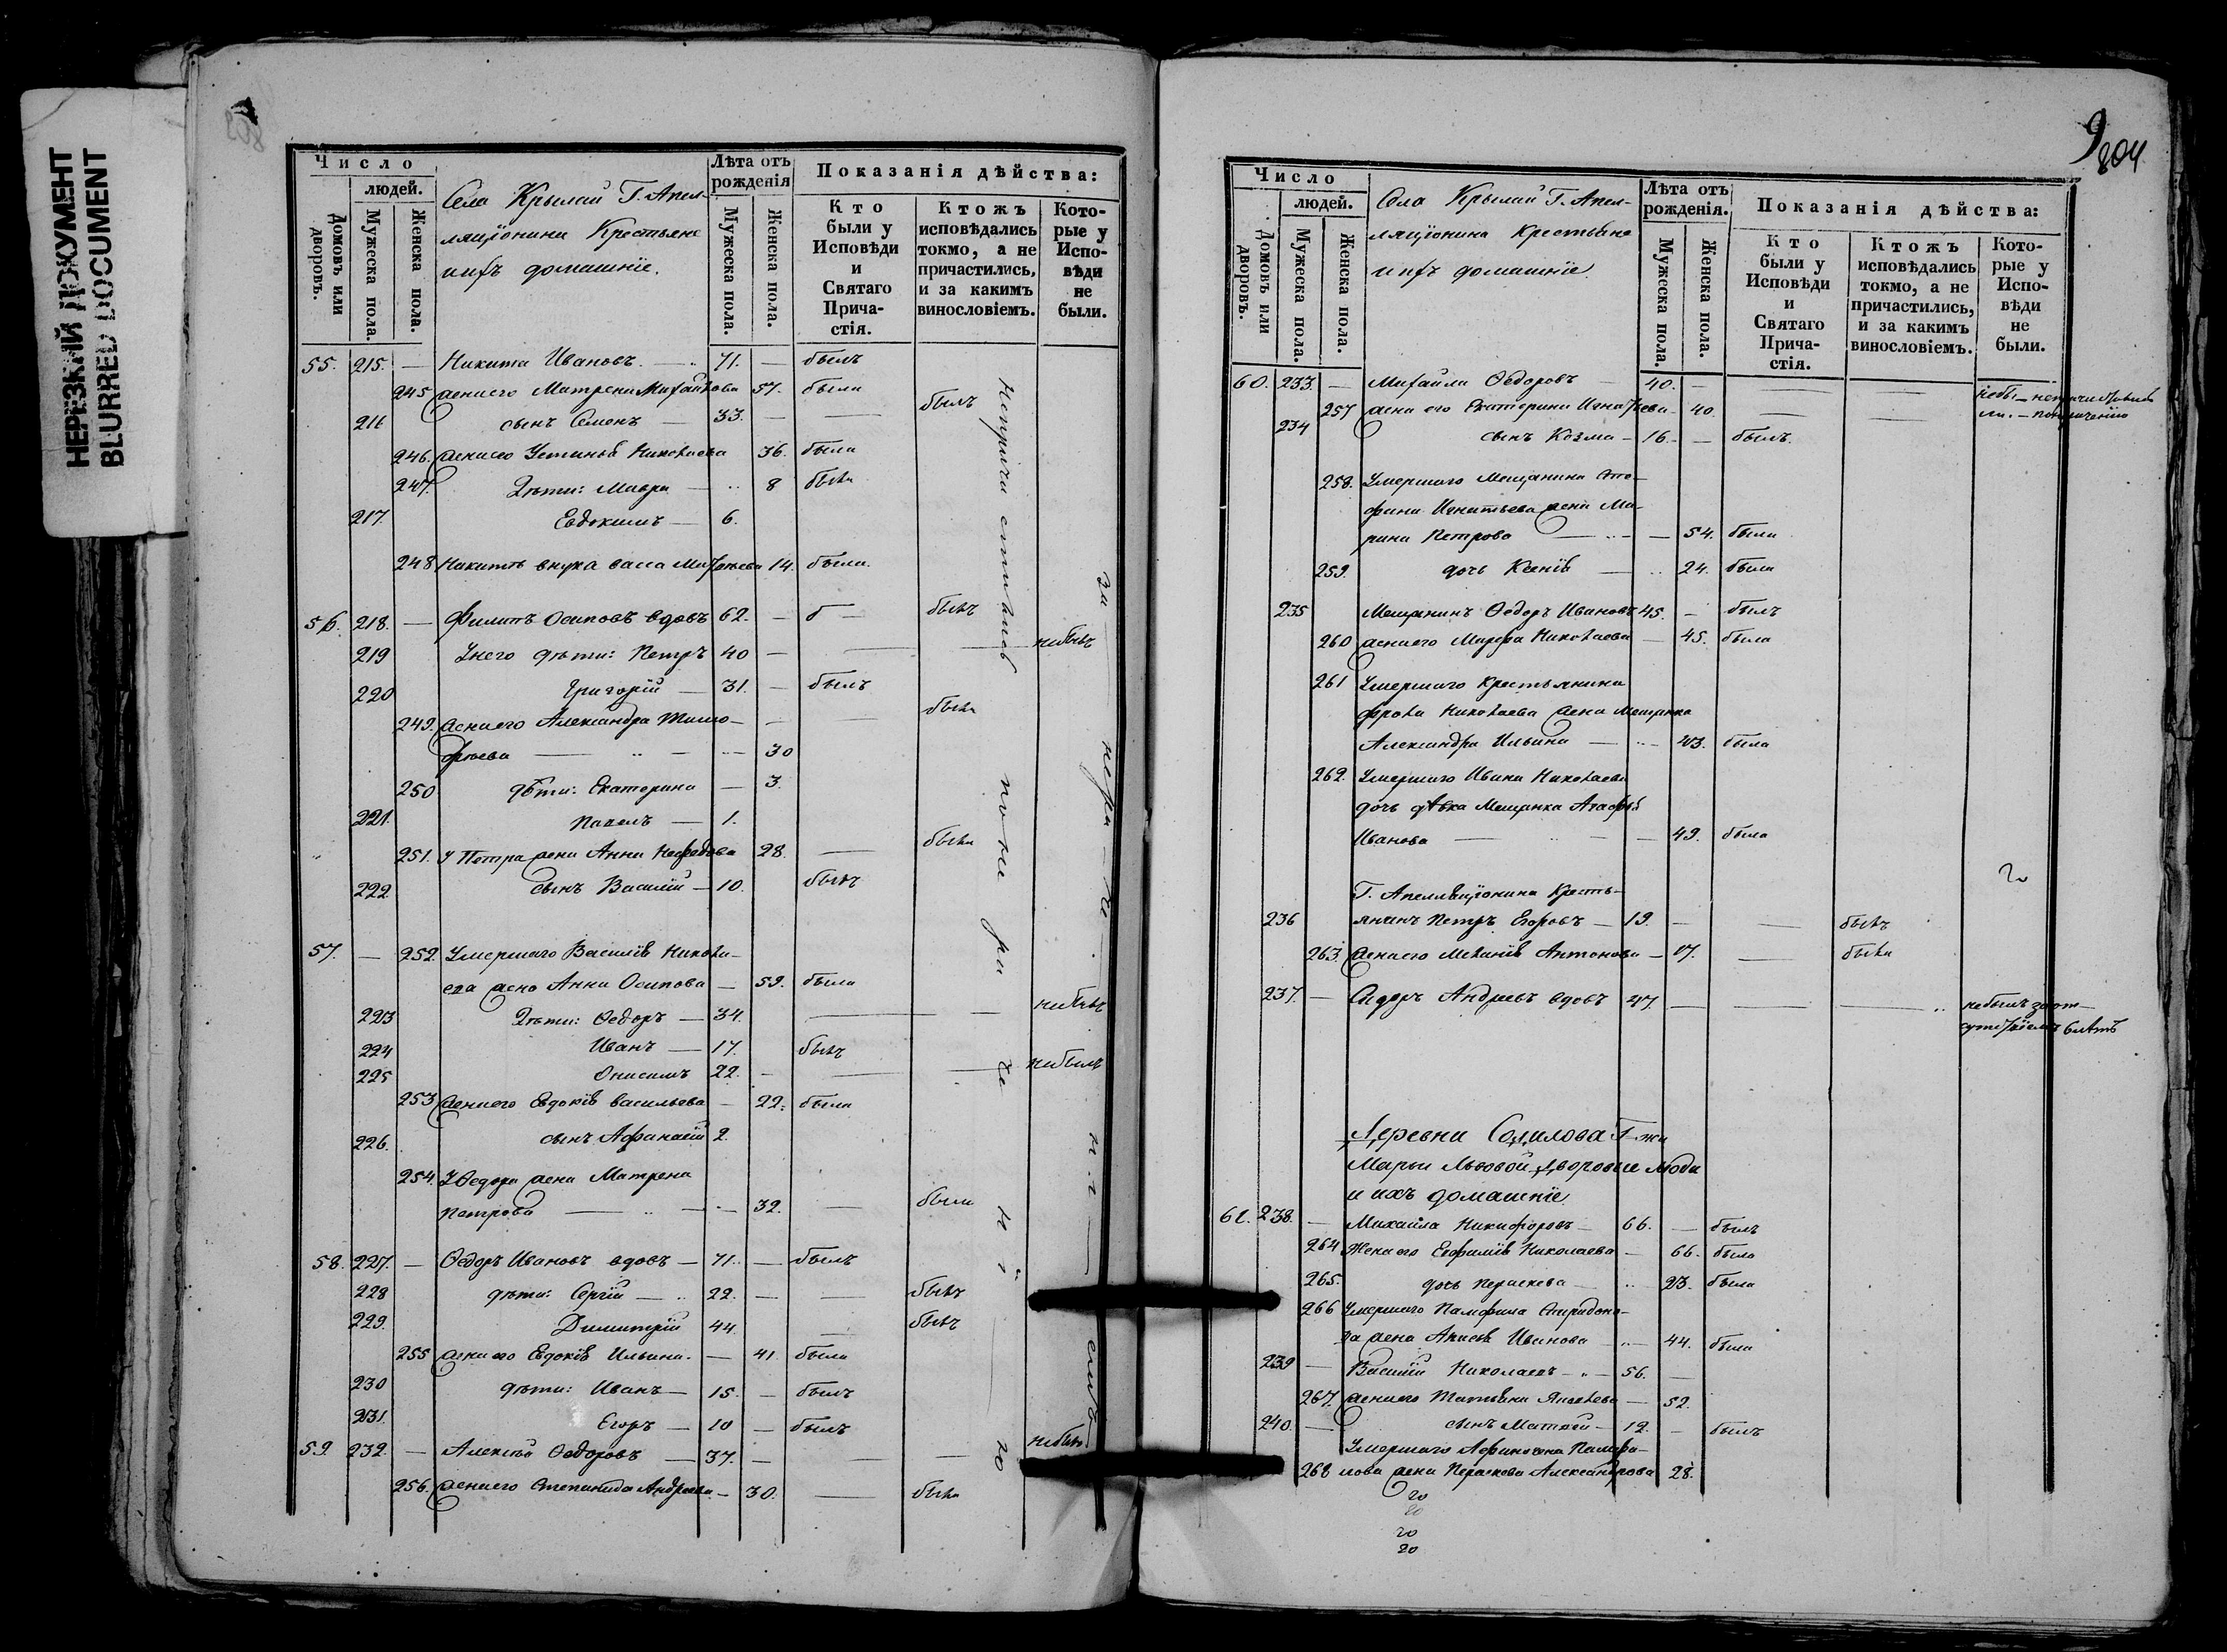 НЕРЕЗКИЙ ДОКУМЕНТ
BLURRED DOCUMENT
Число
людей.
Домовъ или дворовъ.
Мужеска пола.
Женска пола.
Села Крылай Г. Апел-
ляціонина Крестьяне
ихъ домашніе.
Лѣта отъ рожденія
Мужеска пола.
Женска пола.
Показанія дѣйства:
Кто были у Исповѣди и Святаго Причастія.
Ктожъ исповѣдались токмо, а не причастились, и за какимъ винословіемъ.
Которые у Исповѣди не были.
55. 215. — Никита Ивановъ 71. — былъ
245 жена его Матрена Михайлова 57. была
216 сынъ Семенъ 33. — былъ
246. жена его Устинья Николаева 36. была
247. Дѣти: Мавра 8 была
217. Евдокимъ 6.
248 Никиты внука Васса 14. была.
56. 218. — Филипъ Осиповъ вдовъ 62. — б — былъ
219 У него дѣти: Петръ 40 — небылъ
220 Григорій 31. — былъ
249. жена его Александра Тимо- — была
фѣева 30
250 дѣти: Екатерина 3.
221. Павелъ 1.
251. У Петра жена Анна Нефедова 28. — была
222. сынъ Василій 10. былъ
57. — 252. Умершаго Василія Никола-
ева жена Анна Осипова 59. была
223 Дѣти: Ѳедоръ 34. — небылъ
224 Иванъ 17. былъ
225 Онисимъ 22. — небылъ
253 жена его Евдокія Васильева 22. была
226. сынъ Афанасій 2.
254. У Ѳедора жена Матрена
Петрова 32. — была
58. 227. — Ѳедоръ Ивановъ вдовъ 71. — былъ
228 дѣти: Сергій 22. — былъ
229. Димитрій 44. — былъ
255 жена его Евдокія Ильина. 41 была
230 дѣти: Иванъ 15. — былъ
231. Егоръ 10 — былъ
59. 232. — Алексѣй Ѳедоровъ 37. — небылъ
256. жена его Степанида Андреева 30. — была
9
804
Число
людей.
Домовъ или дворовъ.
Мужеска пола.
Женска пола.
Села Крылай Г. Апел-
ляціонина Крестьяне
ихъ домашніе
Лѣта отъ рожденія.
Мужеска пола.
Женска пола.
Показанія дѣйства:
Кто были у Исповѣди и Святаго Причастія.
Ктожъ исповѣдались токмо, а не причастились, и за какимъ винословіемъ.
Которые у Исповѣди не были.
60. 233. — Михайла Ѳедоровъ 40. —
257 жена его Екатерина Игнатьева 40.
234 сынъ Козма 16. — былъ.
258. Умершаго Мещанина
Игнатьева жена Ма-
рина Петрова 54. была
259. дочь Ксенія 24. была
235 Мещанинъ Ѳедоръ Ивановъ 45. — былъ
260 жена его Марфа Николаева 45. была
261 Умершаго Крестьянина
Фрола Николаева жена Мещанка
Александра Ильина 43. была
262. Умершаго Ивана Николаева
дочь дѣвка Мещанка Агафья
Иванова 49. была
Г. Апелляціонина Кресть-
236 янинъ Петръ Егоровъ 19. — былъ
263. жена его Меланія Антонова 17. — была
237. — Сидоръ Андреевъ вдовъ 47. — небылъ за от-
6 лѣтъ
Деревни Солилова Г-жи
Марьи Львовой Дворовые люди
и ихъ домашніе
61. 238. — Михайла Никифоровъ 66. — былъ
264 Жена его Евфимія Николаева 66. была
265. дочь Пераскева 23. была
266 Умершаго Памфила Спиридоно-
ва жена Анисья Иванова 44. была
239 — Василій Николаевъ 56. —
267. жена его Татьяна Яковлева 52.
240. — сынъ Матвей 12. — былъ
Умершаго Памфи-
268 лова жена Пераскева Александрова 28.